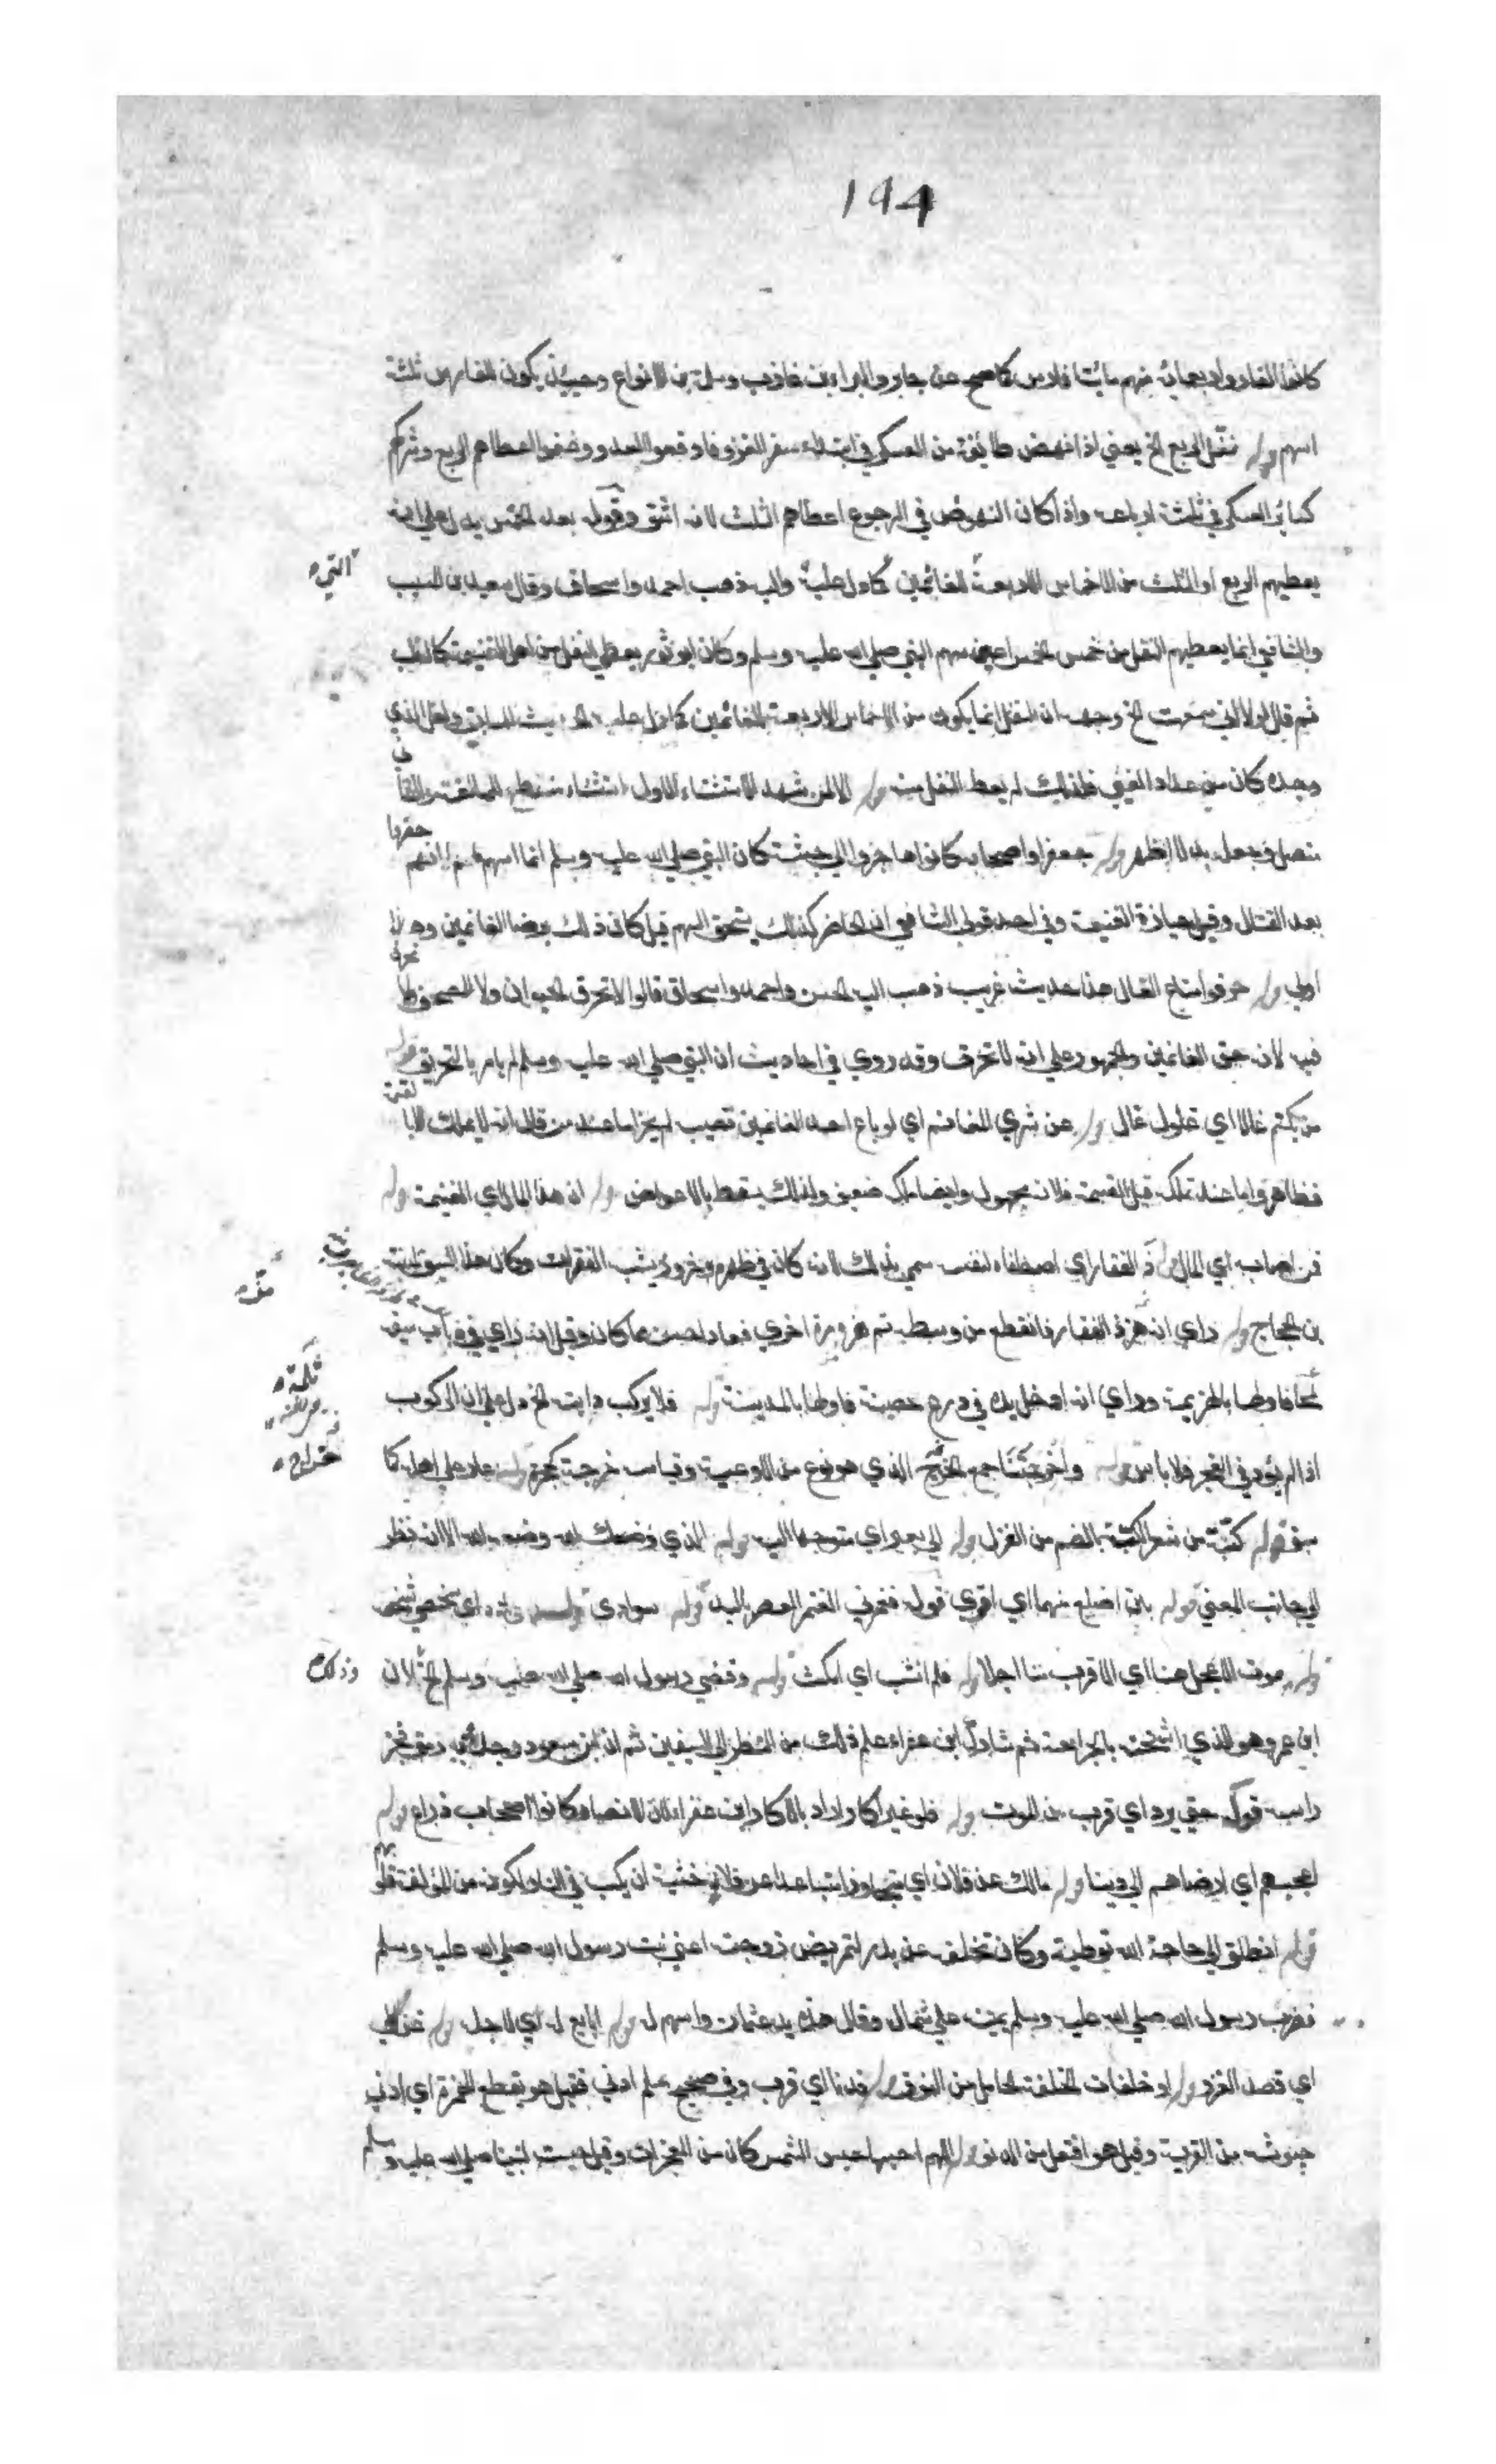 194
كانوا الفا واربعمائة منهم مائتا فارس كما صح عن جابر والبراء بن عازب وسلمة بن الاكوع وحينئذ يكون للفارس ثلثة
اسهم قوله نفل الربع الخ يعني اذا نهض طائفة من العسكر في ابتداء سفر الغزو فاوقعوا العدو وغنموا اعطاهم الربع وشركهم
كسائر العسكر في ثلثة ارباعه واذا كان النهوض في الرجوع اعطاهم الثلث لانه اشق وقوله بعد الخمس يدل على انه
يعطيهم الربع او الثلث من الاخماس الاربعة للغانمين كما دل عليه واليه ذهب احمد واسحاق وقال سعيد بن المسيب
التي
والشافعي انما يعطيهم النفل من خمس الخمس اعني سهم النبي صلى الله عليه وسلم وكان ابو ثور يعطي النفل من اصل الغنيمة كالسلب
ثم قال لولا اني سمعت الخ وجهه ان النفل انما يكون من الاخماس الاربعة للغانمين كما دل عليه الحديث السابق ولعل الذي
وجده كان من عداد الفيء فلذلك لم يعط النفل منه قوله الا لمن شهد الاستثناء الاول استثناء منقطع
متصل قوله جعفرا واصحابه كانوا هاجروا الى حبشة كان النبي صلى الله عليه وسلم انما اسهم لهم لانهم حضروا
بعد القتال وقبل حيازة الغنيمة وفي احد قولي الشافعي ان الحاضر كذلك يستحق السهم قيل كان ذلك برضا الغانمين وهذا
اولى قوله حرقوا متاع الغال هذا حديث غريب ذهب اليه الحسن واحمد واسحاق قالوا لا تحرق الحيوان ولا المصحف
فيه لانه حق الغانمين والجمهور على انه لا تحرق وقد روي في احاديث ان النبي صلى الله عليه وسلم لم يامر بالتحريق قوله
من يكتم غالا اي غلول غال قوله عن شري المغانم اي لو باع احد الغانمين نصيبه لم يجز اما عند من قال انه لا يملك الا بالقسمة
فظاهر واما عند تملك قبل القسمة فلانه مجهول وايضا ملك ضعيف ولذلك يسقط بالاعراض قوله ان هذا المال اي الغنيمة قوله
فمن اصابه اي المال ذا الفقار اي اصطفاه لنفسه سمي بذلك لانه كان في ظهره حزوز يشبه الفقرات وكان هذا السيف لمنبه
بن الحجاج قوله راي انه هز ذا الفقار فانقطع من وسطه ثم هزه مرة اخرى فعاد احسن مما كان وقيل انه راى في ذباب سيفه
ثلمة
فاولها بالهزيمة وراي انه ادخل يده في درع حصينة فاولها بالمدينة قوله فلا يركب دابة الخ دل على ان الركوب
اذا لم يؤد في العجز فلا باس قوله واخرجتنا جمع الخرج الذي هو نوع من الاوعية وقياسه خرجة كجحرة قوله عار على اهله كما
سبق قوله كبة من شعر الكبة بالضم من الغزل قوله الى بعير اي متوجها اليه قوله الذي وضعك الله وضعه الله الا انه نظر
الى جانب المعنى قوله بين اضلع منهما اي اقوى قوله فغمزني الغمز العصر باليد قوله سوادي سواده اي شخصي شخصه
قوله يموت الاعجل منا اي الاقرب منا اجلا قوله فلم انشب اي امكث قوله وقضى رسول الله صلى الله عليه وسلم الخ لان
وذلك
ابن عمرو هو الذي اثخنه بالجراحة ثم شاركه ابن عفراء علم ذلك من النظر الى السيفين ثم ان ابن مسعود وجده وبه رمق فحز
راسه قوله حتى برد اي قرب من الموت قوله فلو غير اكار اراد بالاكار ابن عفراء لان الانصار كانوا اصحاب زراع قوله
اعجبهم اي ارضاهم الى دينا قوله مالك عن فلان اي متجاوزا متباعدا عن فلان خشية ان يكب في النار لكونه من المؤلفة
قوله انطلق الى حاجة الله توطية وكان تخلف عن بدر لتمريض زوجته اعني بنت رسول الله صلى الله عليه وسلم
فضرب رسول الله صلى الله عليه وسلم يمينه على شماله وقال هذه يد عثمان واسهم له قوله ابايع له اي لاجله قوله غزا نبي
اي قصد الغزو قوله او خلفات الخلفة الحامل من النوق قوله فدنا اي قرب وفي صحيح مسلم ادنى فقيل هو بقطع الهمزة اي ادنى
جيوشه من القرية وقيل هو افتعل من الدنو قوله اللهم احبسها حبس الشمس كان من المعجزات وقيل حبست لنبينا صلى الله عليه وسلم